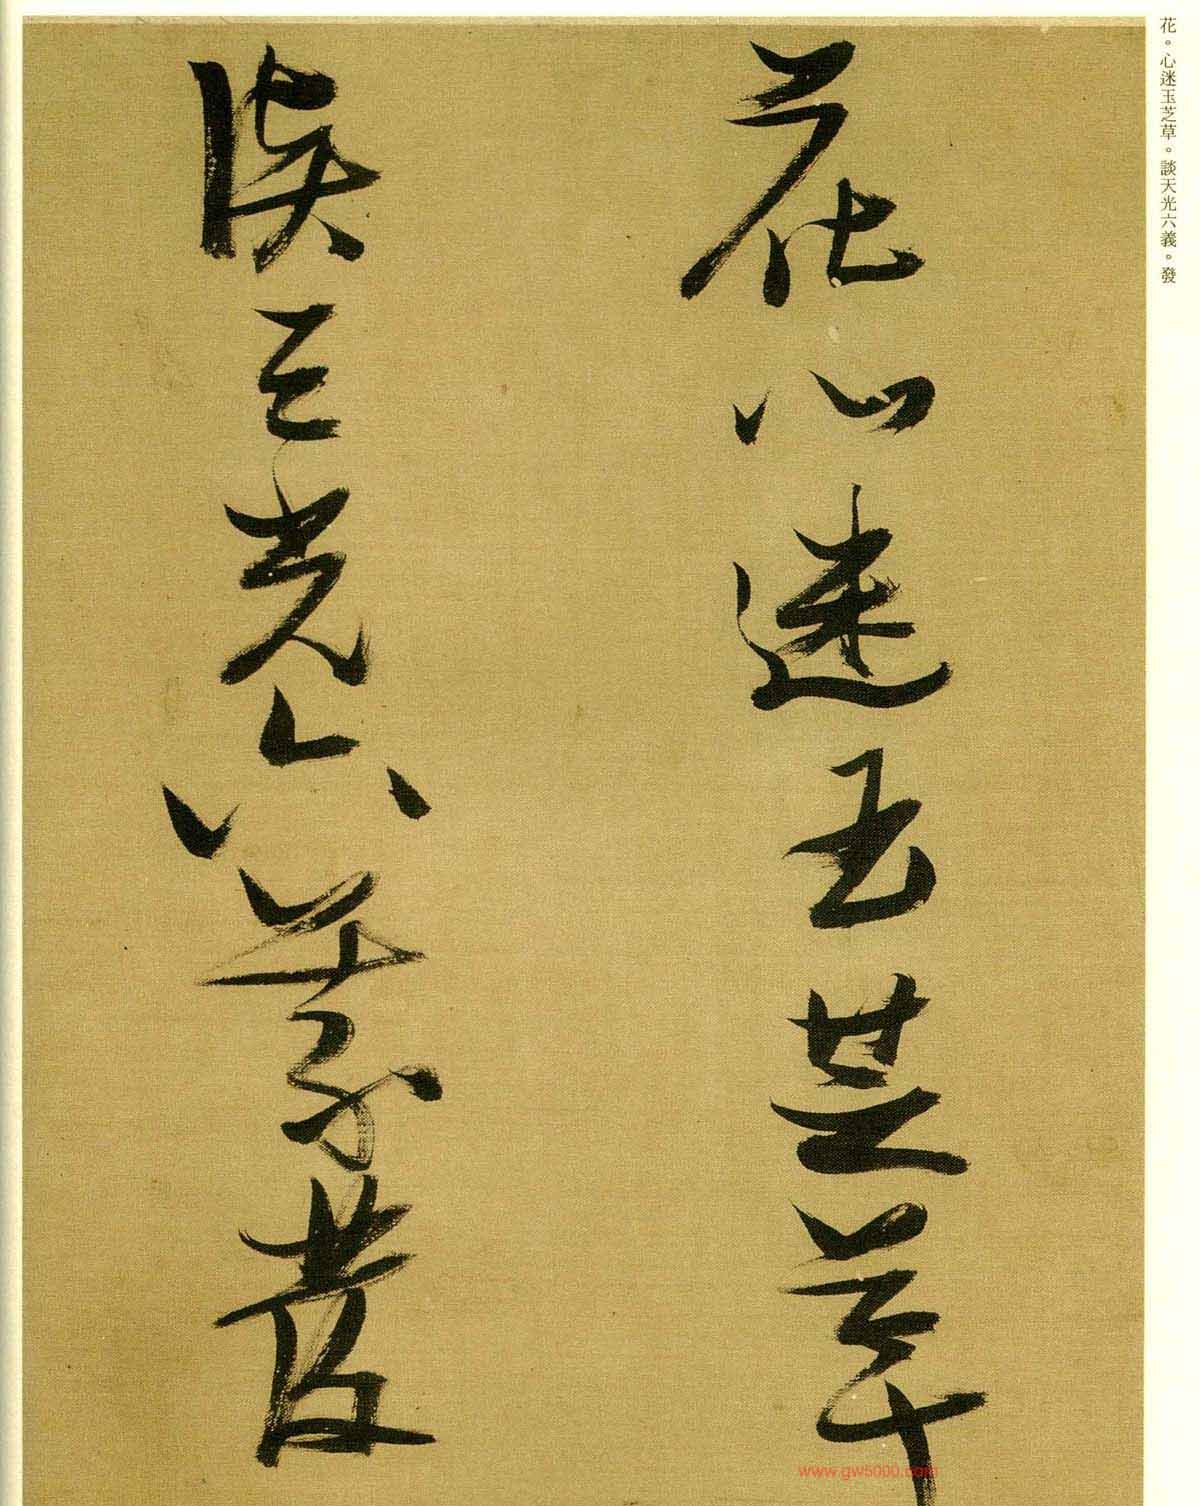 花。心迷玉芝草。談天光六義。發
花心迷玉芝草
談天光六義發
www.gw5000.com